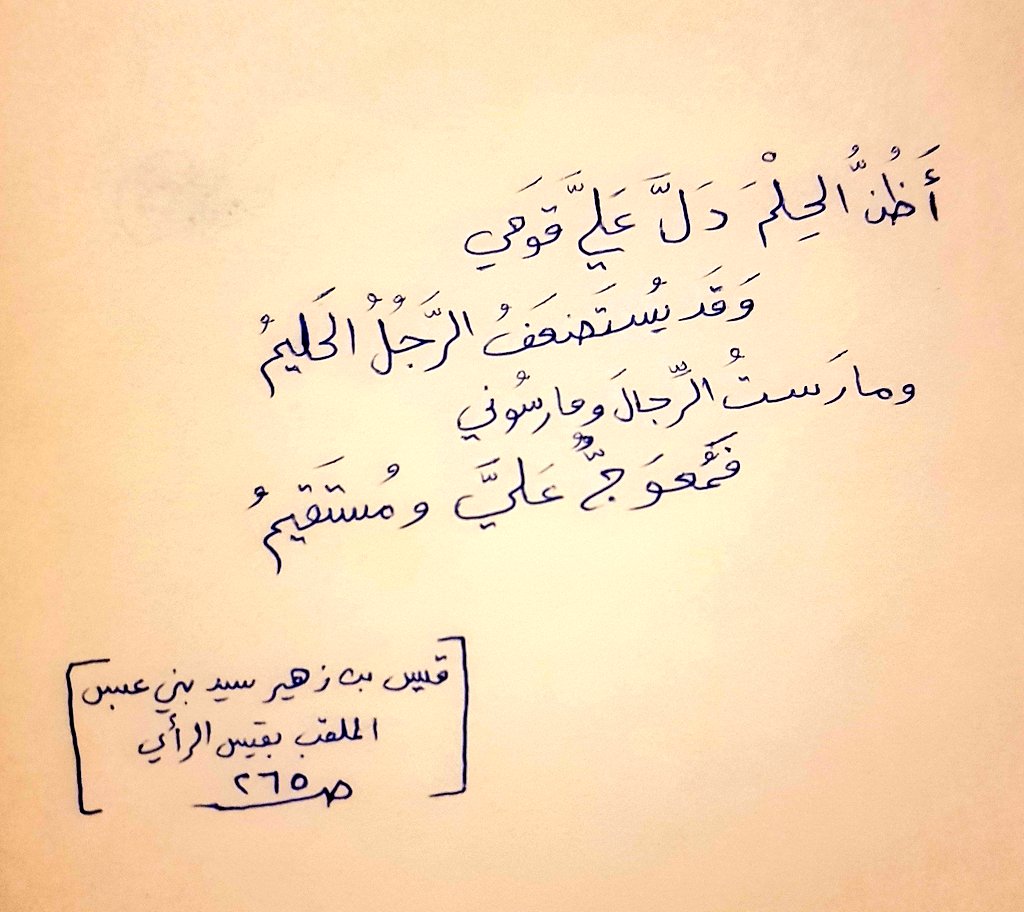 أَظُنُّ الحِلْمَ دَلَّ عَلَيَّ قَومي
وَقَد يُستَضعَفُ الرَّجُلُ الحَليمُ
ومارَستُ الرِّجالَ ومارسُوني
فَمُعوَجٌّ عَليَّ ومُستَقيمُ
قيس بن زهير سيد بني عبس
الملقب بقيس الرأي
ص ٢٦٥